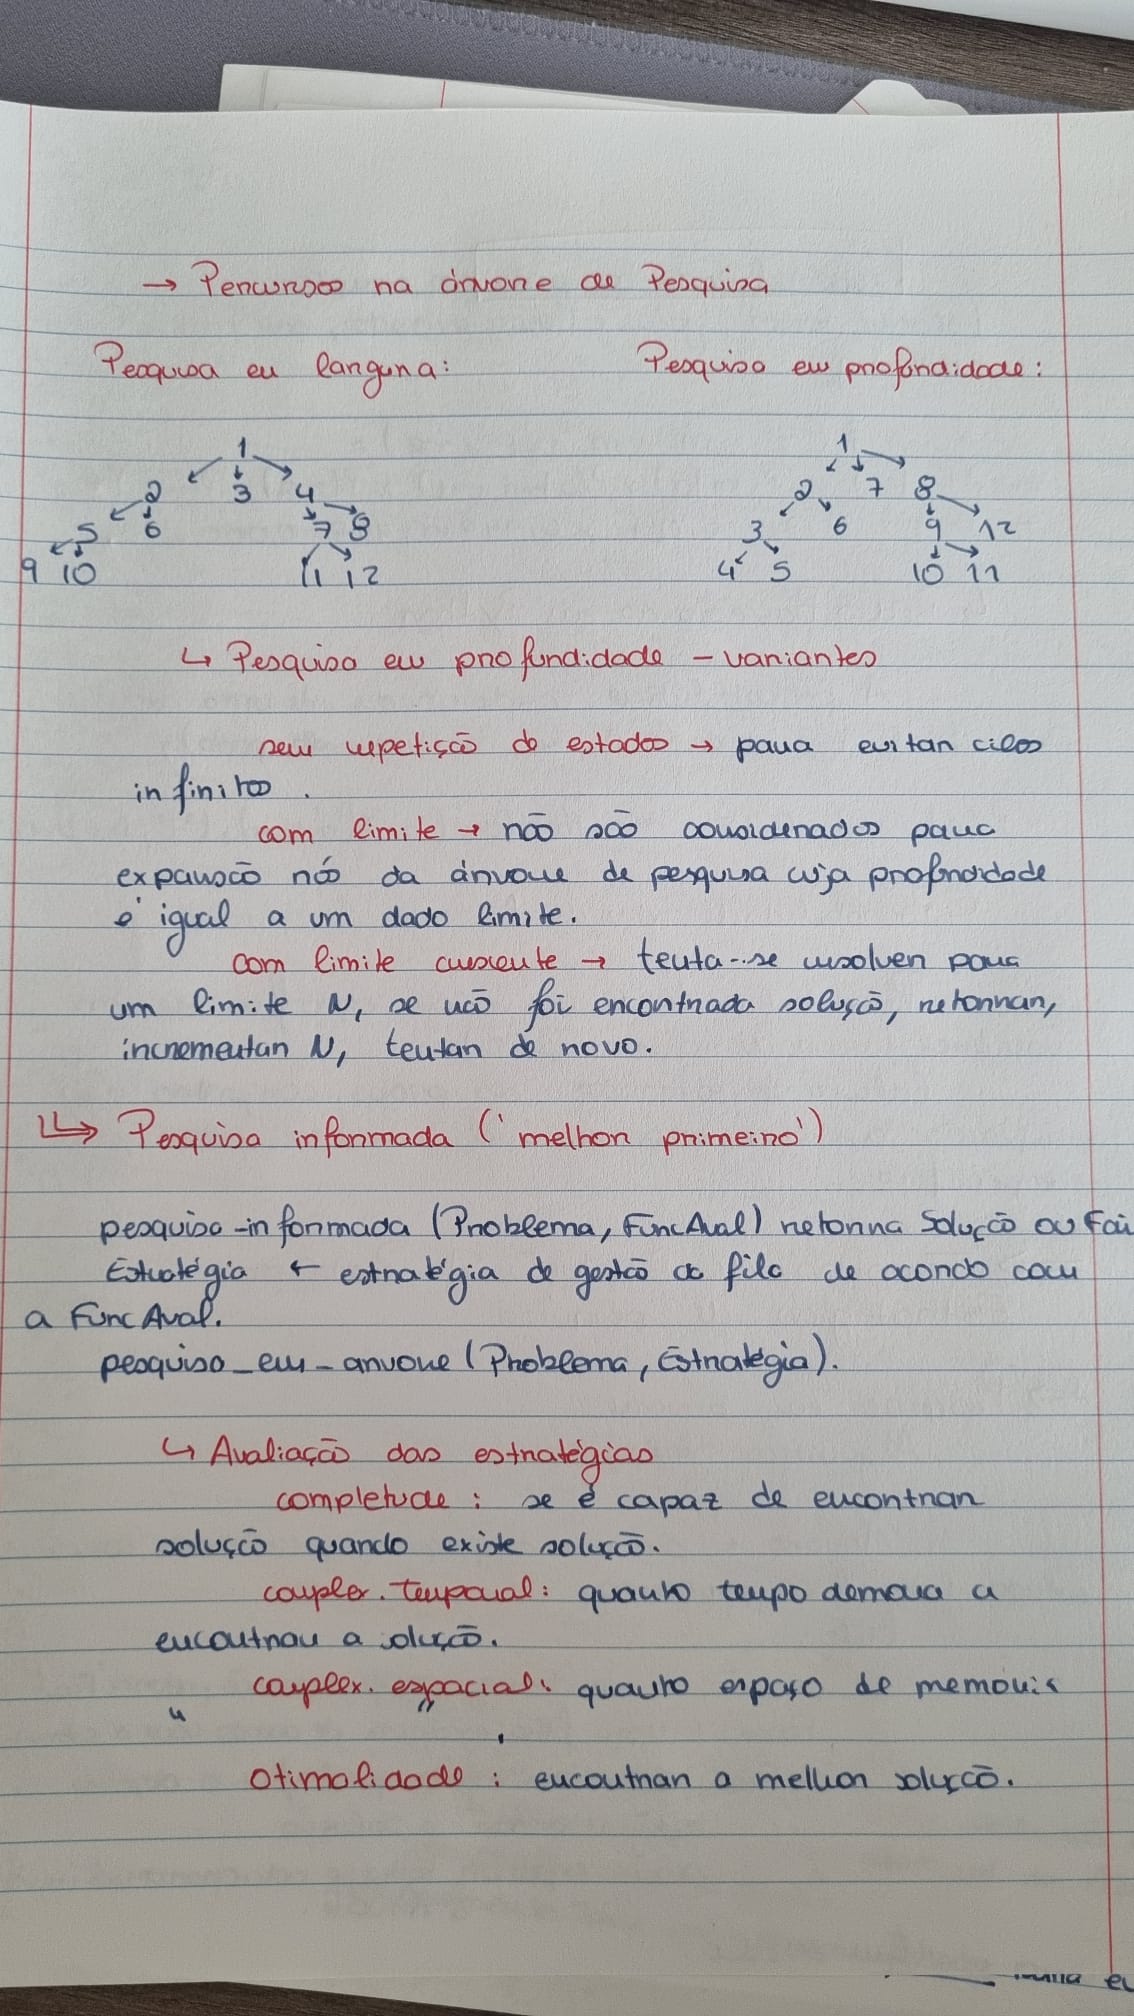 → Percursos na árvore de Pesquisa
Pesquisa em largura: Pesquisa em profundidade:
1 1
2 3 4 2 7 8
5 6 7 8 3 6 9 12
9 10 11 12 4 5 10 11
↳ Pesquisa em profundidade - variantes
sem repetição de estados → para evitar ciclos
infinitos.
com limite → não são considerados para
expansão nós da árvore de pesquisa cuja profundidade
é igual a um dado limite.
com limite crescente → tenta-se resolver para
um limite N, se não foi encontrada solução, retornar,
incrementar N, tentar de novo.
↳ Pesquisa informada ('melhor primeiro')
pesquisa-informada (Problema, FuncAval) retorna Solução ou Fai
Estratégia ← estratégia de gestão da fila de acordo com
a FuncAval.
pesquisa_em_arvore (Problema, Estratégia).
↳ Avaliação das estratégias
completude: se é capaz de encontrar
solução quando existe solução.
complex. temporal: quanto tempo demora a
encontrar a solução.
complex. espacial: quanto espaço de memória
" "
otimalidade: encontrar a melhor solução.